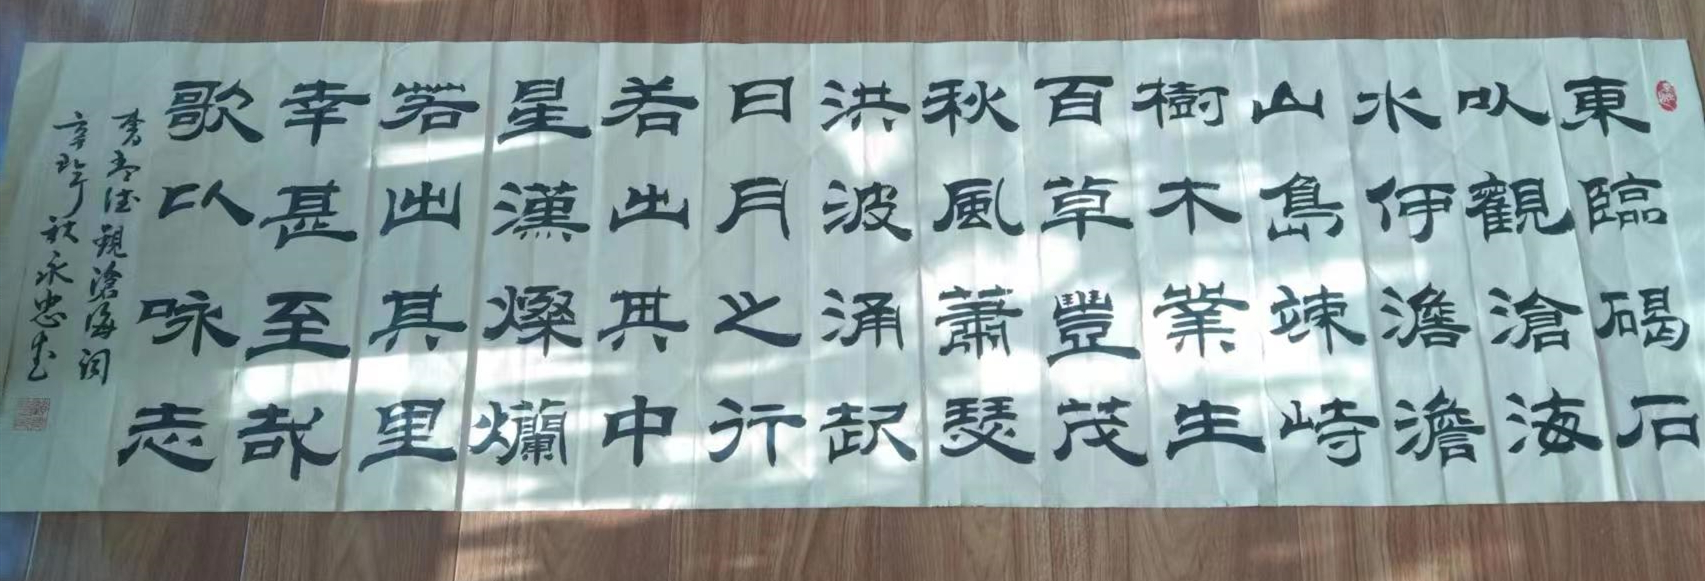 東臨碣石
以觀滄海
水何澹澹
山島竦峙
樹木業生
百草豐茂
秋風蕭瑟
洪波涌起
日月之行
若出其中
星漢燦爛
若出其里
幸甚至哉
歌以咏志
曹孟德觀滄海詞
辛丑年秋永忠書